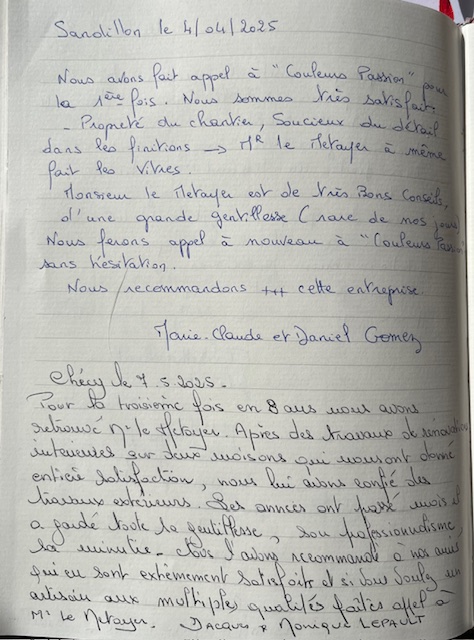 Sandillon le 4/04/2025
Nous avons fait appel à "Couleurs Passion" pour
la 1ère fois. Nous sommes très satisfaits
- Propreté du chantier, Soucieux du détail
dans les finitions → Mr le Metayer à même
fait les vitres.
Monsieur le Metayer est de très Bons Conseils,
d'une grande gentillesse (rare de nos jours)
Nous ferons appel à nouveau à "Couleurs Passion
sans hésitation.
Nous recommandons +++ cette entreprise.
Marie-Claude et Daniel Gomez
Chécy le 7.5.2025.
Pour la troisième fois en 8 ans nous avons
retrouvé Mr le Metayer. Après des travaux de rénovation
intérieures sur deux maisons qui nous ont donné
entière satisfaction, nous lui avons confié des
travaux extérieurs. Les années ont passé mais il
a gardé toute sa gentillesse, son professionnalisme
sa minutie. Nous l'avons recommandé à nos amis
qui en sont extrêmement satisfaits et si vous voulez un
artisan aux multiples qualités faites appel à
Mr le Metayer. Jacques & Monique LEPAULT